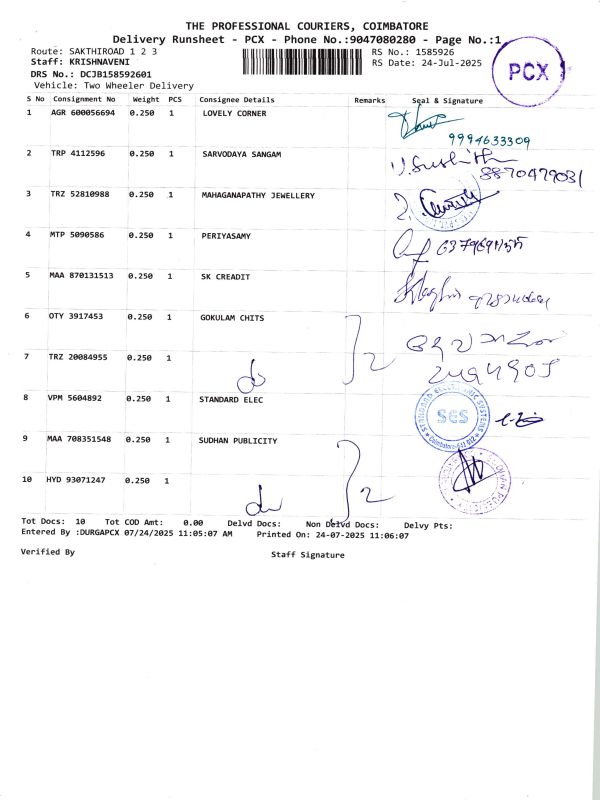 THE PROFESSIONAL COURIERS, COIMBATORE
Delivery Runsheet - PCX - Phone No.:9047080280 - Page No.:1
Route: SAKTHIROAD 1 2 3
RS No.: 1585926
Staff: KRISHNAVENI
RS Date: 24-Jul-2025
PCX
DRS No.: DCJB158592601
Vehicle: Two Wheeler Delivery
S No Consignment No Weight PCS Consignee Details Remarks Seal & Signature
1 AGR 600056694 0.250 1 LOVELY CORNER
9994633309
2 TRP 4112596 0.250 1 SARVODAYA SANGAM
8870479031
3 TRZ 52810988 0.250 1 MAHAGANAPATHY JEWELLERY
4 MTP 5090586 0.250 1 PERIYASAMY
5 MAA 870131513 0.250 1 SK CREADIT
6 OTY 3917453 0.250 1 GOKULAM CHITS
7 TRZ 20084955 0.250 1 do 2
8 VPM 5604892 0.250 1 STANDARD ELEC
STANDARD ELECTRONIC SYSTEMS
SES
Coimbatore-641 012
9 MAA 708351548 0.250 1 SUDHAN PUBLICITY
10 HYD 93071247 0.250 1 do 2
SUDHAN PUBLICITY
Tot Docs: 10 Tot COD Amt: 0.00 Delvd Docs: Non Delvd Docs: Delvy Pts:
Entered By :DURGAPCX 07/24/2025 11:05:07 AM Printed On: 24-07-2025 11:06:07
Verified By Staff Signature